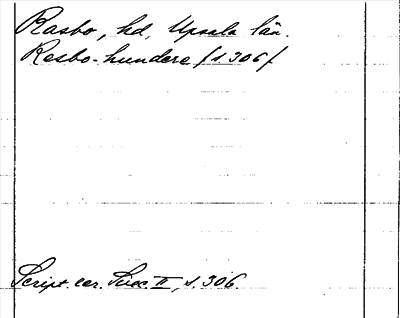 Rasbo, hd, Upsala län.
Resbo-hundere /s. 306/.
Script. rer. Svec. II, s. 306.